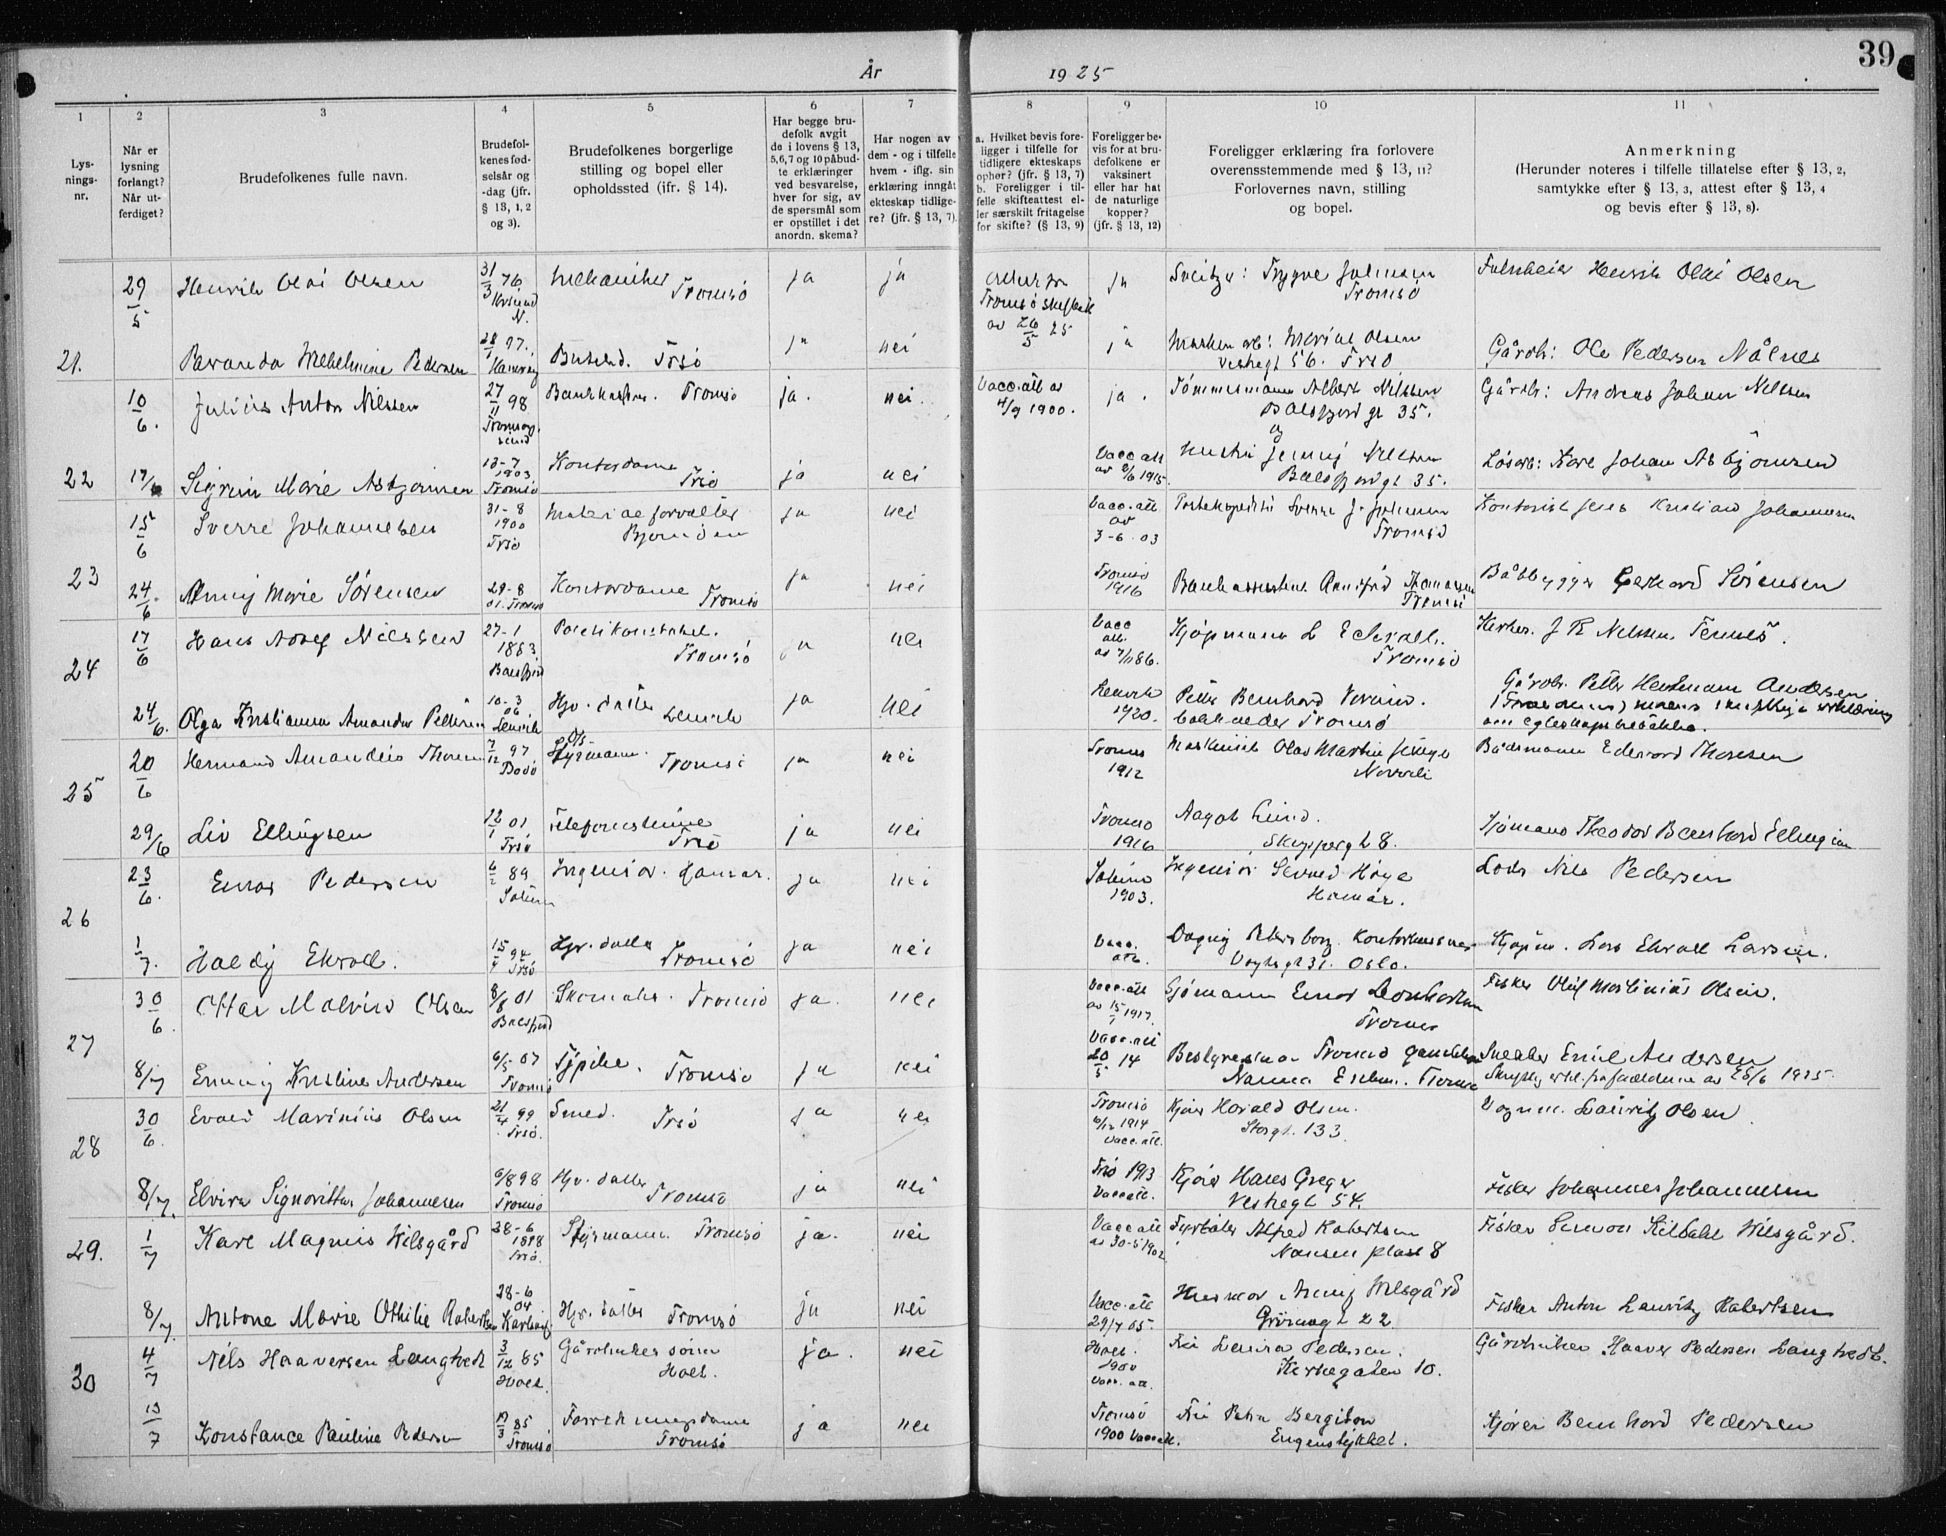 39
År 1925
1 2 3 4 5 6 7 8 9 10 11
Lys-
nings-
nr.
Når er
lysning
forlangt?
Når ut-
ferdiget?
Brudefolkenes fulle navn.
Brudefol-
kenes fød-
selsår og
-dag (jfr.
§ 13, 1, 2
og 3).
Brudefolkenes borgerlige
stilling og bopel eller
opholdssted (ifr. § 14).
Har begge bru-
defolk avgit
de i lovens § 13,
5,6,7 og 10 påbud-
te erklæringer
ved besvarelse,
hver for sig, av
de spørsmål som
er opstillet i det
anordn. skema?
Har nogen av
dem - og i tilfelle
hvem - iflg. sin
erklæring inngåt
ekteskap tidlige-
re? (jfr. § 13, 7).
a. Hvilket bevis fore-
ligger i tilfelle for
tidligere ekteskaps
ophør? (jfr. § 13, 7)
b. Foreligger i til-
felle skifteattest el-
ler særskilt fritagelse
for skifte? (§ 13, 9)
Foreligger be-
vis for at bru-
defolkene er
vaksinert
eller har hat
de naturlige
kopper?
(jfr. § 13, 12)
Foreligger erklæring fra forlovere
overensstemmende med § 13, 11?
Forlovernes navn, stilling
og bopel.
Anmerkning
(Herunder noteres i tilfelle tillatelse efter § 13, 2,
samtykke efter § 13, 3, attest efter § 13, 4
og bevis efter § 13, 8).
29/5 Henrik Olai Olsen 31/3 76 N. Mekaniker Tromsø ja ja Tromsø av 26/5 25 ja Trygve Tromsø Henrik Olai Olsen
21. Wilhelmine Pedersen 97. Trsø ja nei ja Olsen Vestregt 56. Trsø Gårdb: Ole Pedersen Nålnes
10/6. Julius Anton Nilssen 27/11 98 Tromsøysund Tromsø ja. nei. Vacc. att av 4/9 1900. ja. Tømmermann Albert Nilssen Balsfjord gt 35. Gårdb: Andreas Johan Nilssen
22 17/6 Sigrun Marie Asbjørnsen 13-7 1903 Tromsø Kontordame Trsø ja nei Vacc att av 1915. og Hustru Jenny Nilssen Balsfjordgt 35. Løsarb: Kare Johan Asbjørnsen
15/6 Sverre Johannesen 31-8 1900 Trsø Materialforvalter ja nei Vacc. att av 3-6-03 Postekspeditør Sverre Tromsø Kontorist Jens Kristian Johannesen
23 24/6 Anny Marie Sørensen 29-8 01. Tromsø Kontordame Tromsø ja nei Tromsø 1916 Bankassistent Thomassen Tromsø Båtbygger Gerhard Sørensen
24 17/6 Hans Adolf Nilssen 27-1 1883 Balsfjord Politikonstabel. Tromsø ja nei Vacc att. av Kjøpmann L Ekrall. Tromsø Nilssen
24/6. Olga Kristianna Amanda Pettersen 10-3 06 Lenvik Hjv. datter Lenvik ja nei Lenvik 1920. Petter Bernhard Tromsø Gårdb. Petter Hartmann Andersen
25 20/6 Hermann Amandus Thoresen 7/12 97 Bodø Styrmann. Tromsø ja nei Tromsø 1912 Maskinist Olav Martin Båtsmann Edevard Thoresen
29/6 Liv Ellingsen 12/1 01 Trsø Telefonistinne Trsø ja nei Tromsø 1916 Aagot Lund. Skippergt 8. Sjømann Theodor Bernhard Ellingsen
26 23/6. Einar Pedersen 89 Ingeniør. Hamar. ja nei 1903. Ingeniør Høye Hamar. Lods Nils Pedersen
1/7. Haldis Ekrall. 15/4 94 Trsø Hjv. datter Tromsø ja nei Vacc. att. Dagny Petersborg. Oslo. Kjøpm. Lars Ekrall Larsen.
27 30/6. Ottar Malvin Olsen 8/8 01 Balsfjord Skomaker. Tromsø ja. nei Vacc. att av 15/1 1917. Sjømann Einar Leonhardsen Tromsø Fisker Oluf Martinius Olsen.
8/7 Emmy Kristine Andersen 6/5-07 Tromsø Typike. Tromsø ja nei Vacc. 20/5. 14 Bestyrerinne Tromsø Nanna Tromsø Snekker Emil Andersen
28 30/6. Evald Marinius Olsen 21/4 99 Trsø. Smed. Trsø ja nei Tromsø 6/12 1914 Vacc. att. Kjører Harald Olsen. Storgt. 133. Vognm. Lauritz Olsen.
8/7. Elvira Johannesen 6/8 98 Tromsø Hjv. datter Tromsø ja nei Trsø 1913 Vacc att. Kjører Hans Greger Vestregt 54. Fisker Johannes Johannesen
29. 1/7 Karl Magnus Wilsgård 28-6 1898 Trsø. Styrmann. Tromsø ja. nei Vacc att av 30-5 1902 Fyrbøter Alfred Robertsen Nansens plass 8 Fisker Simon Kildahl Wilsgård.
8/7. Antone Marie Othilie Robertsen 28-6 04 Karlsøy Hjv. datter Tromsø ja nei Vacc. att 29/7 05. Anny Wilsgård Grønnegt 22 Fisker Anton Lauritz Robertsen
30 4/7 Nils Haaversen Langtvedt 3/12 85 Holt. Gårdbrukersønn Holt. ja. nei Holt. 1900 Vacc. att. Frk Laura Pedersen. Kirkegaten 10. Gårdbruker Haaver Pedersen Langtvedt.
13/7 Konstance Pauline Pedersen 19/3 85 Tromsø Forretningsdame Tromsø ja nei Tromsø 1900 Vacc att. Frk Petra Bergiton Engenstykket. Kjører Bernhard Pedersen